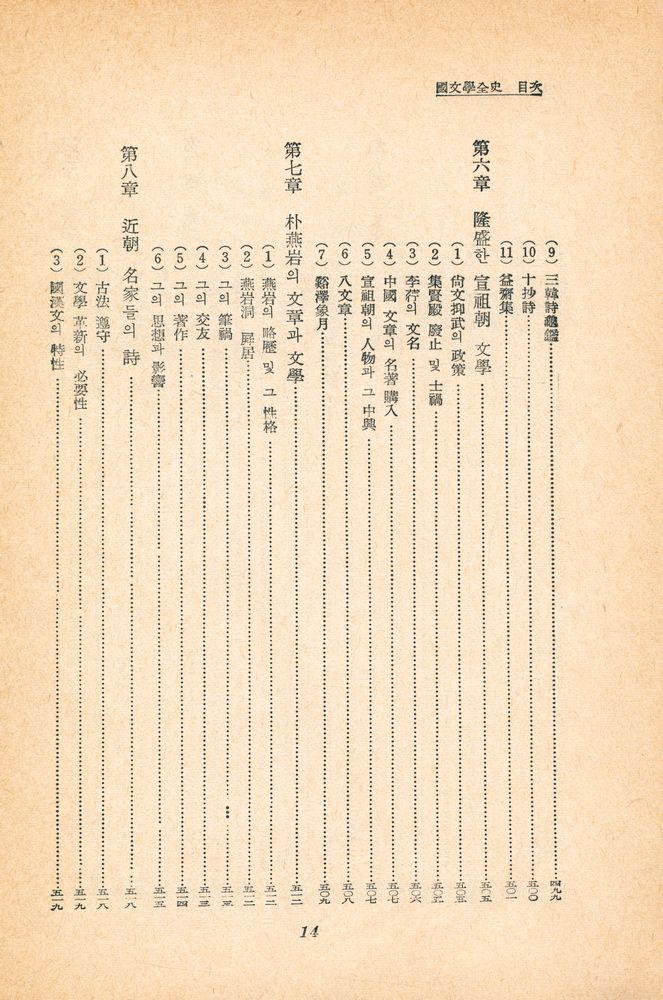 國文學全史 目次
(9) 三韓詩龜鑑 四九九
(10) 十抄詩 五〇〇
(11) 益齋集 五〇一
第六章 隆盛한 宣祖朝 文學 五〇五
(1) 尙文抑武의 政策 五〇五
(2) 集賢殿 廢止 및 士禍 五〇五
(3) 李荇의 文名 五〇六
(4) 中國 文章의 名著 購入 五〇七
(5) 宣祖朝의 人物과 그 中興 五〇七
(6) 八文章 五〇八
(7) 谿澤象月 五〇九
第七章 朴燕岩의 文章과 文學 五一二
(1) 燕岩의 略歷 및 그 性格 五一二
(2) 燕岩洞 屛居 五一二
(3) 그의 筆禍 五一三
(4) 그의 交友 五一三
(5) 그의 著作 五一四
(6) 그의 思想과 影響 五一五
第八章 近朝 名家들의 詩 五一八
(1) 古法 遵守 五一八
(2) 文學 革新의 必要性 五一九
(3) 國漢文의 特性 五一九
14